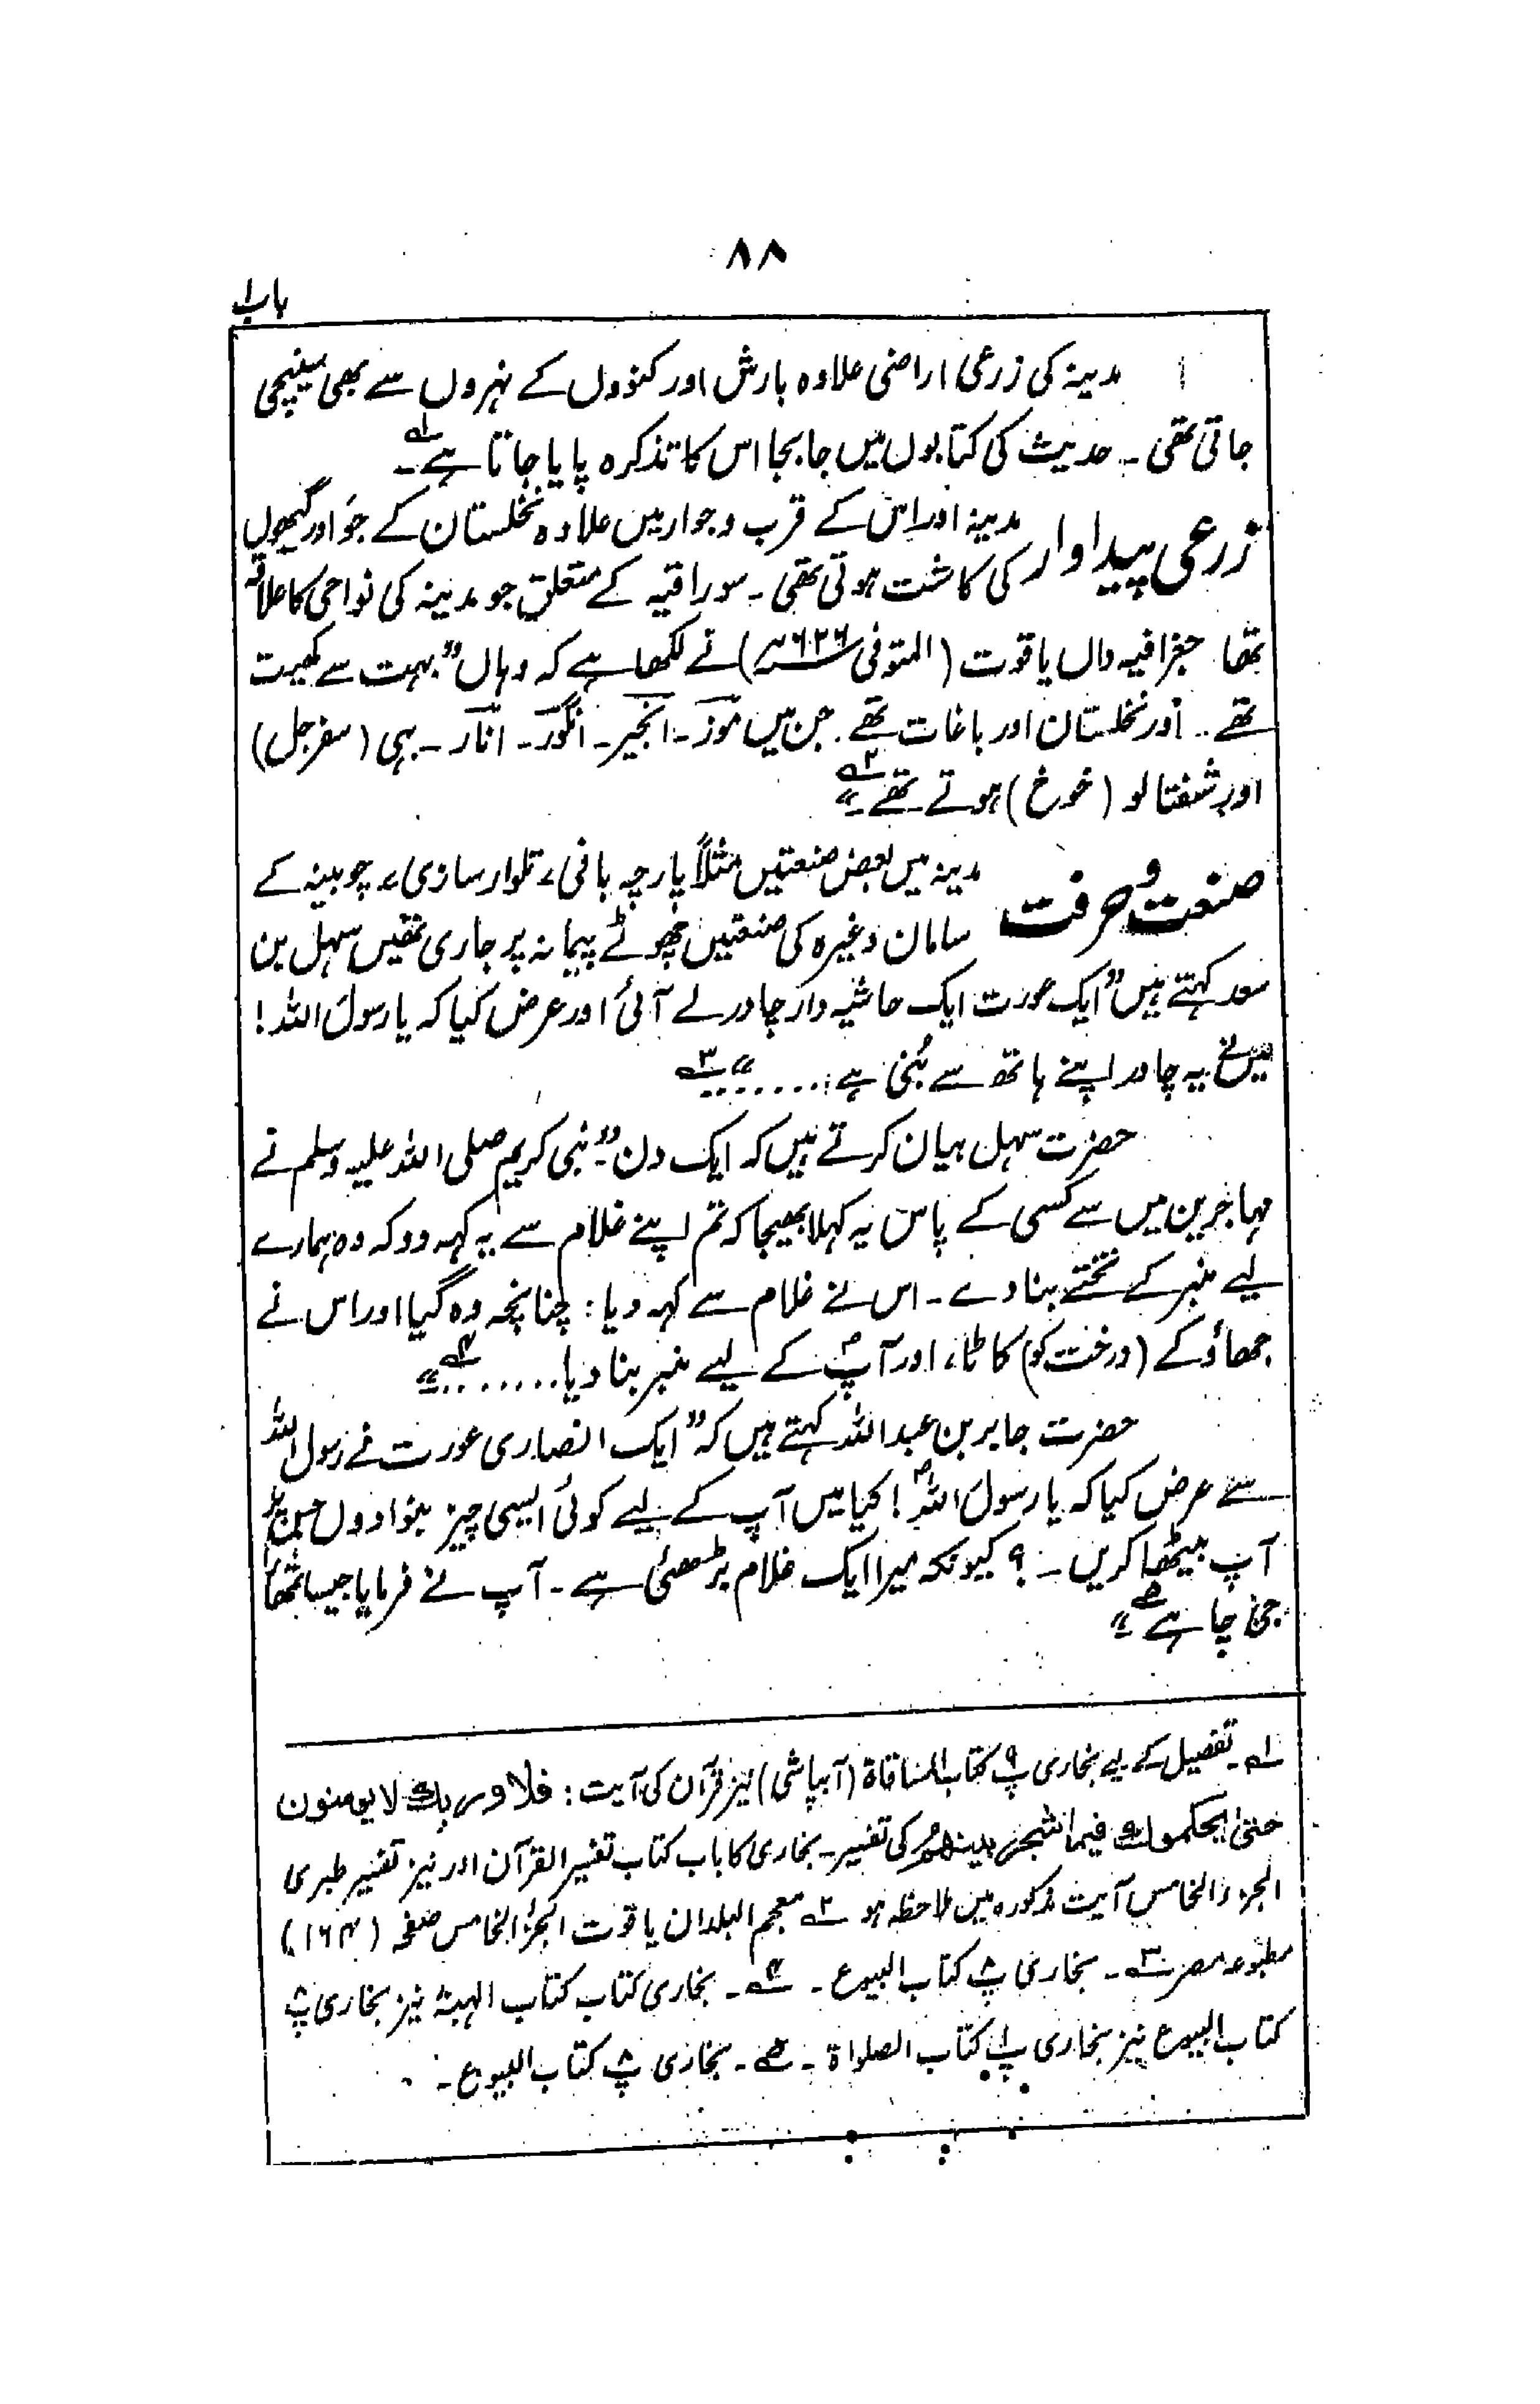 ۸۸
باب ۱
مدینہ کی زرعی اراضی علاوہ بارش اور کنوؤں کے نہروں سے بھی سینچی
جاتی تھی ۔ حدیث کی کتابوں میں جابجا اس کا تذکرہ پایا جاتا ہے ۱؎ ۔
زرعی پیداوار مدینہ اور اس کے قرب و جوار میں علاوہ نخلستان کے جَو اور گیہوں
کی کاشت ہوتی تھی ۔ سوراقیہ کے متعلق جو مدینہ کی نواحی کا علاقہ
تھا جغرافیہ داں یاقوت (المتوفی ۶۲۶ھ) نے لکھا ہے کہ وہاں ”بہت سے کھیت
تھے ۔ اور نخلستان اور باغات تھے ۔ جن میں موز ۔ انجیر ۔ انگور ۔ انار ۔ بہی (سفرجل)
اور شفتالو (خوخ) ہوتے تھے ۲؎“
صنعت و حرفت مدینہ میں بعض صنعتیں مثلاً پارچہ بافی، تلوار سازی، چوبینہ کے
سامان وغیرہ کی صنعتیں چھوٹے پیمانہ پر جاری تھیں سہل بن
سعد کہتے ہیں ”ایک عورت ایک حاشیہ دار چادر لے آئی اور عرض کیا کہ یا رسول اللہ !
میں نے یہ چادر اپنے ہاتھ سے بُنی ہے ......“ ۳؎
حضرت سہل بیان کرتے ہیں کہ ایک دن ”نبی کریم صلی اللہ علیہ وسلم نے
مہاجرین میں سے کسی کے پاس یہ کہلا بھیجا کہ تم اپنے غلام سے یہ کہہ دو کہ وہ ہمارے
لیے منبر کے تختے بنا دے ۔ اس نے غلام سے کہہ دیا : چنانچہ وہ گیا اور اس نے
جھاؤ کے (درخت کو) کاٹا، اور آپؐ کے لیے منبر بنا دیا ........ ۴؎“
حضرت جابر بن عبداللہ کہتے ہیں کہ ”ایک انصاری عورت نے رسول اللہ
سے عرض کیا کہ یا رسول اللہؐ ! کیا میں آپ کے لیے کوئی ایسی چیز بنوا دوں جس پر
آپ بیٹھا کریں ۔ ؟ کیونکہ میرا ایک غلام بڑھئی ہے ۔ آپ نے فرمایا جیسا تمھارا
جی چاہے ۵؎“
۱؎ ۔ تفصیل کے لیے بخاری پ ۹ کتاب المساقاۃ (آبپاشی) نیز قرآن کی آیت : فلا وربک لا یومنون
حتیٰ یحکموک فیما شجر بینھم کی تفسیر ۔ بخاری کا باب کتاب تفسیر القرآن اور نیز تفسیر طبری
الجزء الخامس آیت مذکورہ میں ملاحظہ ہو ۲؎ معجم البلدان یاقوت الجزء الخامس صفحہ (۱۶۴)
مطبوعہ مصر ۳؎ ۔ بخاری پ ۸ کتاب البیوع ۔ ۴؎ ۔ بخاری کتاب کتاب الہبۃ نیز بخاری پ ۸
کتاب البیوع نیز بخاری پ ۱ کتاب الصلواۃ ۔ ۵؎ ۔ بخاری پ ۸ کتاب البیوع ۔